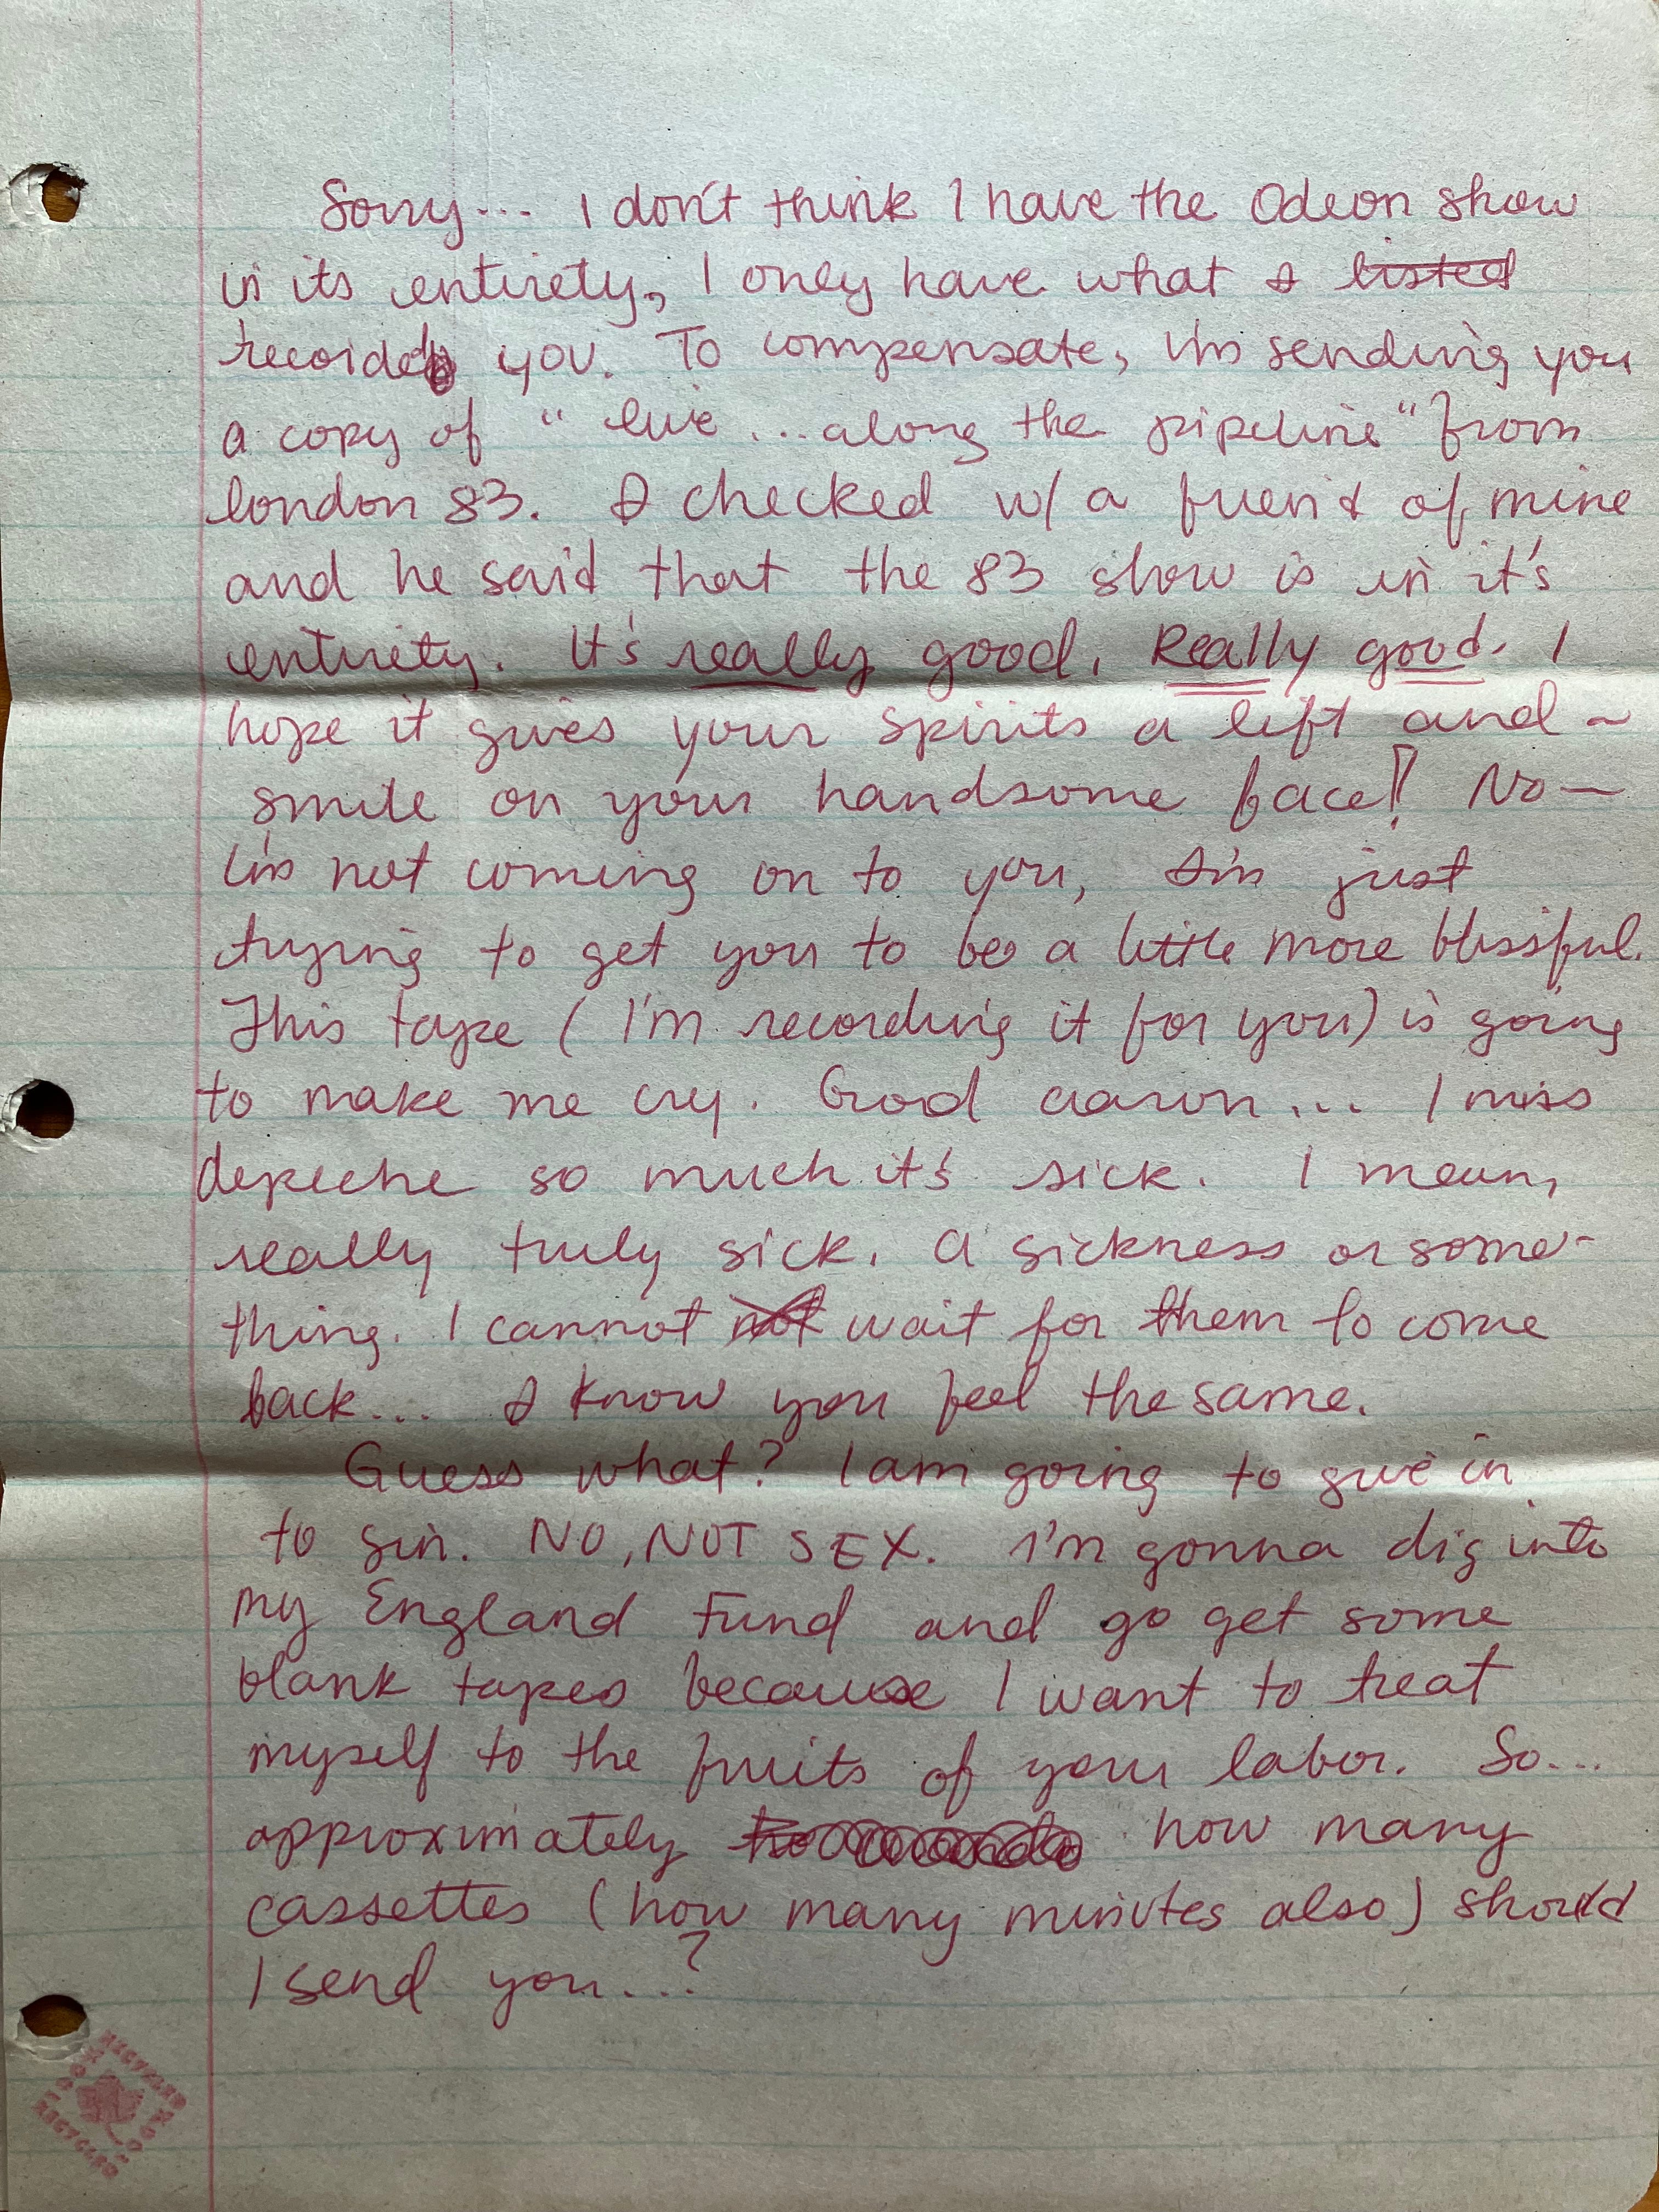 Sorry... I don't think I have the Odeon show
in its entirety, I only have what I listed
recorded you. To compensate, I'm sending you
a copy of "live ... along the pipeline" from
london 83. I checked w/ a friend of mine
and he said that the 83 show is in it's
entirety. It's really good. Really good. I
hope it gives your spirits a lift and ~
smile on your handsome face! No —
I'm not coming on to you, I'm just
trying to get you to be a little more blissful.
This tape (I'm recording it for you) is going
to make me cry. God aaron... I miss
depeche so much it's sick. I mean,
really truly sick. A sickness or some-
thing. I cannot not wait for them to come
back... I know you feel the same.
Guess what? I am going to give in
to sin. NO, NOT SEX. I'm gonna dig into
my England Fund and go get some
blank tapes because I want to treat
myself to the fruits of your labor. So...
approximately how many
cassettes (how many minutes also) should
I send you...?
RECYCLED
RECYCLED